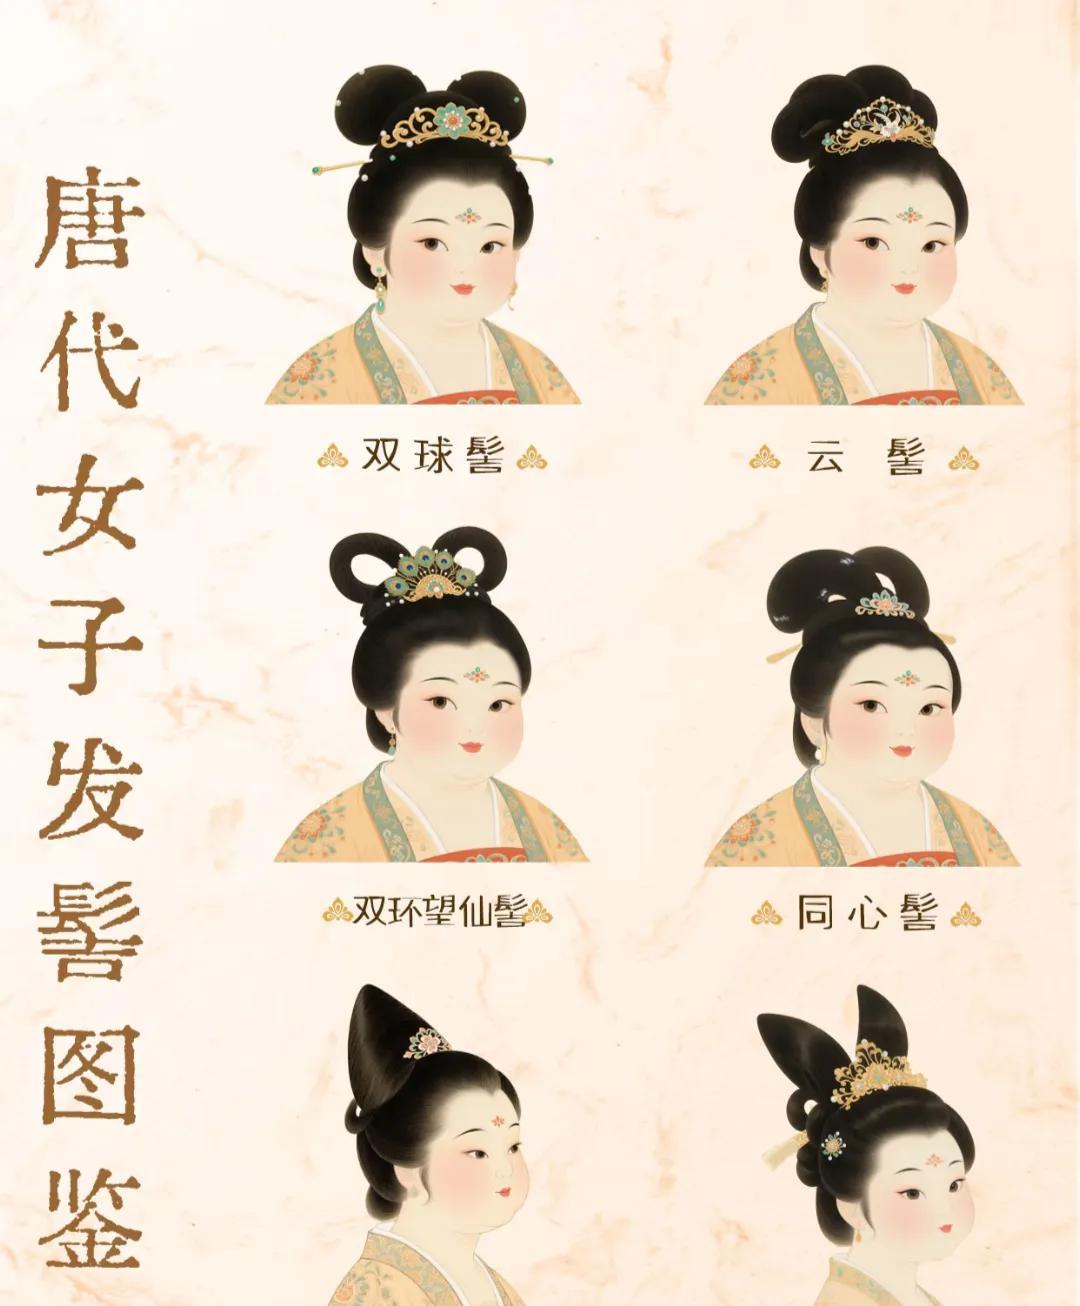 唐代女子发髻图鉴
双球髻
云髻
双环望仙髻
同心髻